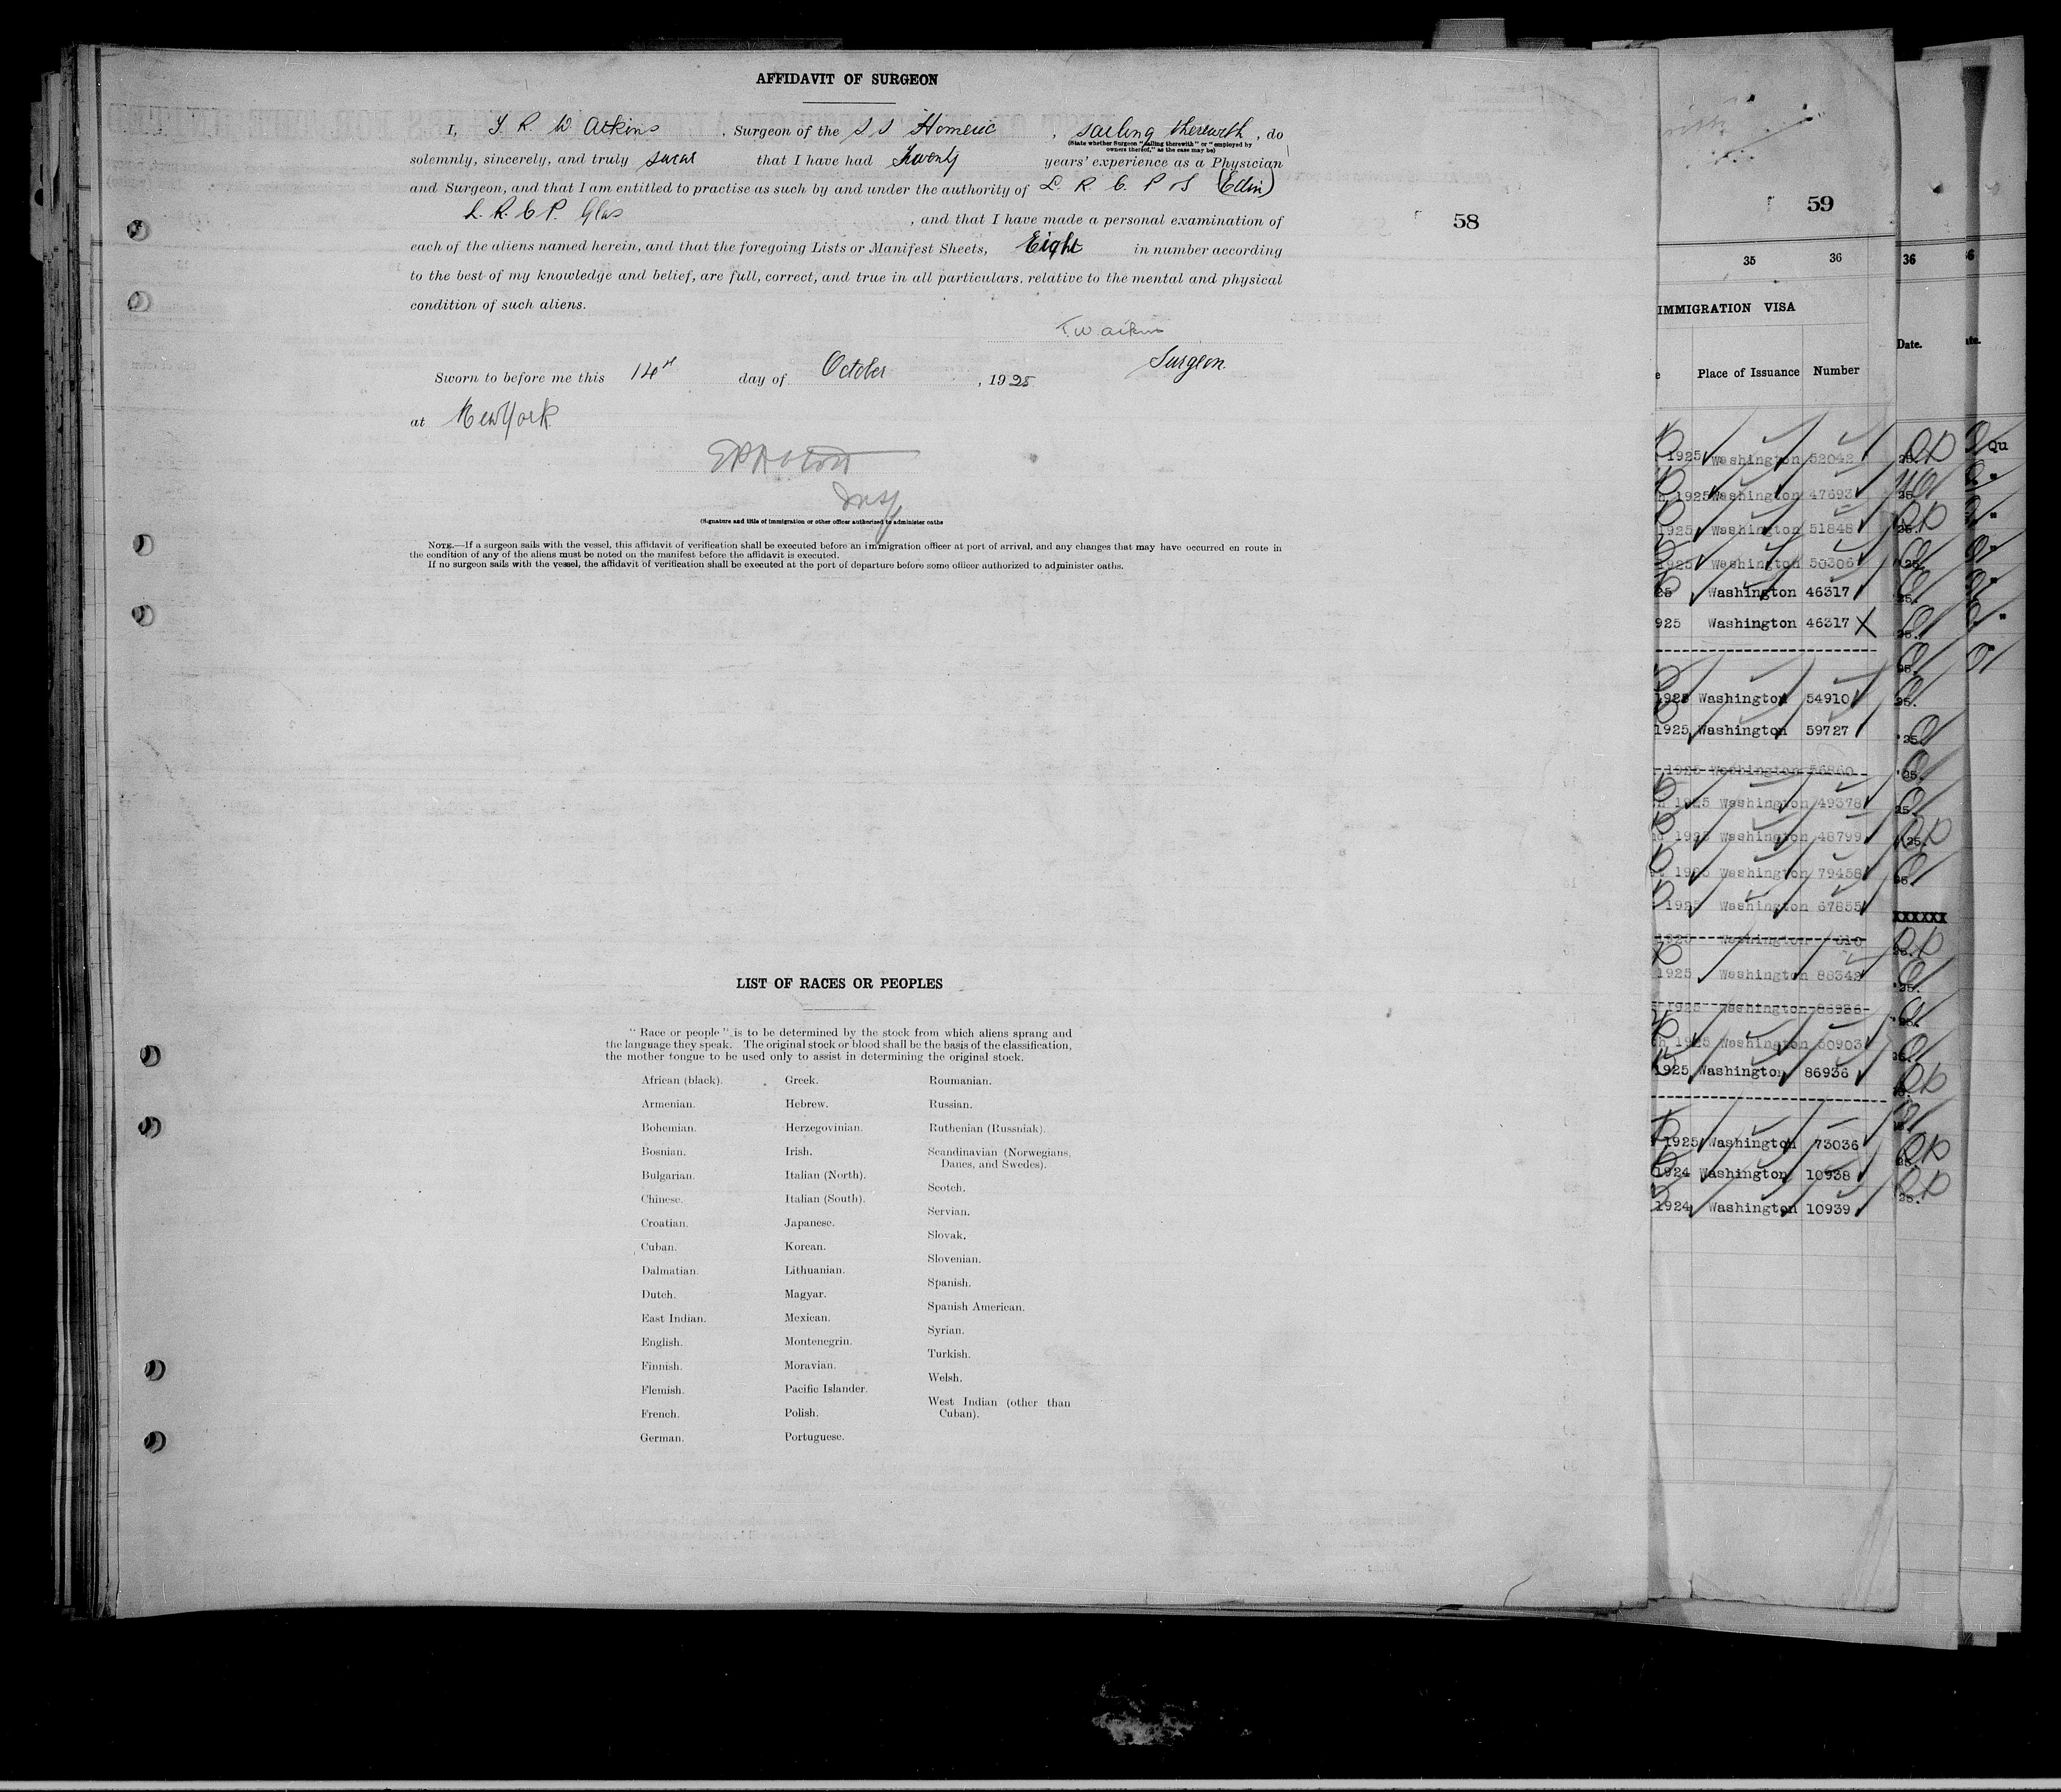 AFFIDAVIT OF SURGEON
I, T. R. W Atkins , Surgeon of the S S Homeric , sailing therewith , do
(State whether Surgeon "sailing therewith" or "employed by
owners thereof," as the case may be)
solemnly, sincerely, and truly swear that I have had Twenty years' experience as a Physician
and Surgeon, and that I am entitled to practise as such by and under the authority of L. R. C. P & S (Edin)
L. R. C P. Glas , and that I have made a personal examination of
each of the aliens named herein, and that the foregoing Lists or Manifest Sheets, Eight in number according
to the best of my knowledge and belief, are full, correct, and true in all particulars, relative to the mental and physical
condition of such aliens.
Surgeon.
Sworn to before me this 14th day of October , 1925
at New York
Insp
(Signature and title of immigration or other officer authorized to administer oaths
NOTE.—If a surgeon sails with the vessel, this affidavit of verification shall be executed before an immigration officer at port of arrival, and any changes that may have occurred en route in
the condition of any of the aliens must be noted on the manifest before the affidavit is executed.
If no surgeon sails with the vessel, the affidavit of verification shall be executed at the port of departure before some officer authorized to administer oaths.
58
LIST OF RACES OR PEOPLES
"Race or people" is to be determined by the stock from which aliens sprang and
the language they speak. The original stock or blood shall be the basis of the classification,
the mother tongue to be used only to assist in determining the original stock.
African (black).
Armenian.
Bohemian.
Bosnian.
Bulgarian.
Chinese.
Croatian.
Cuban.
Dalmatian.
Dutch.
East Indian.
English.
Finnish.
Flemish.
French.
German.
Greek.
Hebrew.
Herzegovinian.
Irish.
Italian (North).
Italian (South).
Japanese.
Korean.
Lithuanian.
Magyar.
Mexican.
Montenegrin.
Moravian.
Pacific Islander.
Polish.
Portuguese.
Roumanian.
Russian.
Ruthenian (Russniak).
Scandinavian (Norwegians,
Danes, and Swedes).
Scotch.
Servian.
Slovak.
Slovenian.
Spanish.
Spanish American.
Syrian.
Turkish.
Welsh.
West Indian (other than
Cuban).
59
35 36
IMMIGRATION VISA
Place of Issuance Number
1925 Washington 52042
1925 Washington 47693
1925 Washington 51848
1925 Washington 50306
25 Washington 46317
925 Washington 46317 X
1925 Washington 54910
1925 Washington 59727
1925 Washington 56860
1925 Washington 49378
1925 Washington 48799
1925 Washington 79458
1925 Washington 67855
1925 Washington 610
1925 Washington 88342
1925 Washington 86936
1925 Washington 50903
1925 Washington 86936
1925 Washington 73036
1924 Washington 10938
1924 Washington 10939
36
Date.
XXXXXX
Qu